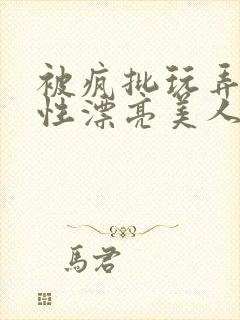 被疯批玩弄
性漂亮美人
馬君